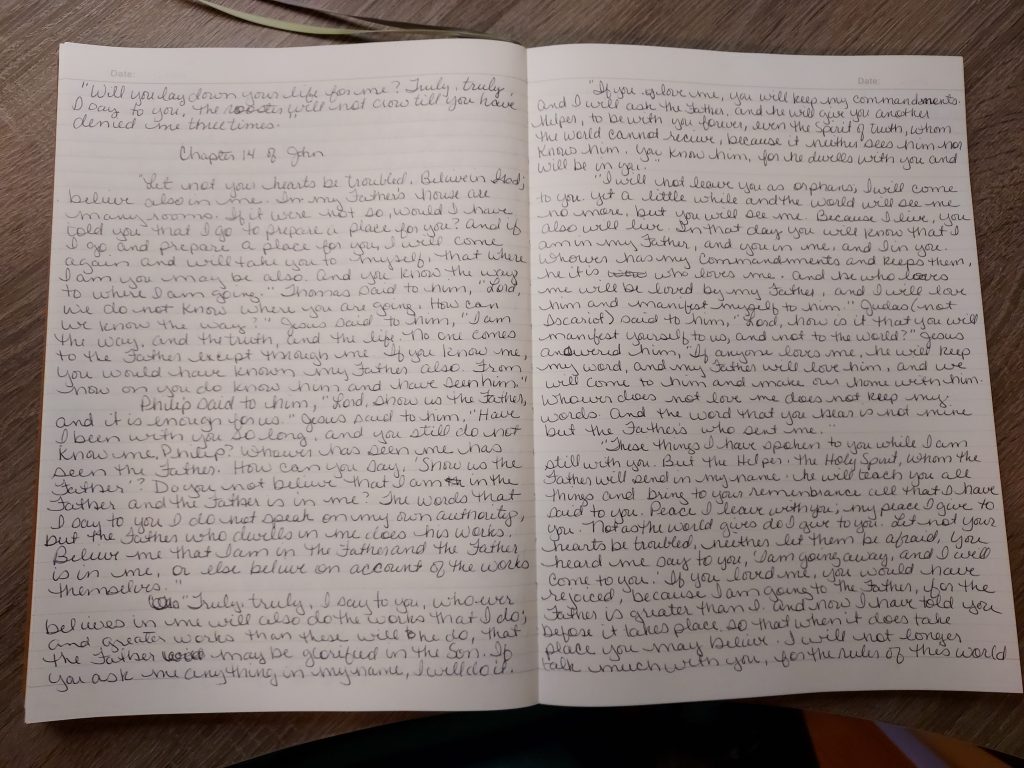 Date:
"Will you lay down your life for me? Truly, truly,
I say to you, the rooster will not crow till you have
denied me three times.
Chapter 14 of John
"Let not your hearts be troubled. Believe in God;
believe also in me. In my Father's house are
many rooms. If it were not so, would I have
told you that I go to prepare a place for you? And if
I go and prepare a place for you, I will come
again and will take you to myself, that where
I am you may be also. And you know the way
to where I am going." Thomas said to him, "Lord,
we do not know where you are going. How can
we know the way?" Jesus said to him, "I am
the way, and the truth, and the life. No one comes
to the Father except through me. If you know me,
you would have known my Father also. From
now on you do know him and have seen him."
Philip said to him, "Lord, show us the Father,
and it is enough for us." Jesus said to him, "Have
I been with you so long, and you still do not
know me, Philip? Whoever has seen me has
seen the Father. How can you say, 'Show us the
Father'? Do you not believe that I am in the
Father and the Father is in me? The words that
I say to you I do not speak on my own authority,
but the Father who dwells in me does his works.
Believe me that I am in the Father and the Father
is in me, or else believe on account of the works
themselves."
"Truly, truly, I say to you, whoever
believes in me will also do the works that I do;
and greater works than these will he do, that
the Father may be glorified in the Son. If
you ask me anything in my name, I will do it.
Date:
"If you love me, you will keep my commandments.
and I will ask the Father, and he will give you another
Helper, to be with you forever, even the Spirit of truth, whom
the world cannot receive, because it neither sees him nor
knows him. You know him, for he dwells with you and
will be in you.
"I will not leave you as orphans, I will come
to you. Yet a little while and the world will see me
no more, but you will see me. Because I live, you
also will live. In that day you will know that I
am in my Father, and you in me, and I in you.
Whoever has my commandments and keeps them,
he it is who loves me. And he who loves
me will be loved by my Father, and I will love
him and manifest myself to him." Judas (not
Iscariot) said to him, "Lord, how is it that you will
manifest yourself to us, and not to the world?" Jesus
answered him, "If anyone loves me, he will keep
my word, and my Father will love him, and we
will come to him and make our home with him.
Whoever does not love me does not keep my
words. And the word that you hear is not mine
but the Father's who sent me."
"These things I have spoken to you while I am
still with you. But the Helper, the Holy Spirit, whom the
Father will send in my name, he will teach you all
things and bring to your remembrance all that I have
said to you. Peace I leave with you; my peace I give to
you. Not as the world gives do I give to you. Let not your
hearts be troubled, neither let them be afraid, You
heard me say to you, 'I am going away, and I will
come to you.' If you loved me, you would have
rejoiced, because I am going to the Father, for the
Father is greater than I. And now I have told you
before it takes place, so that when it does take
place you may believe. I will not longer
talk much with you, for the ruler of this world